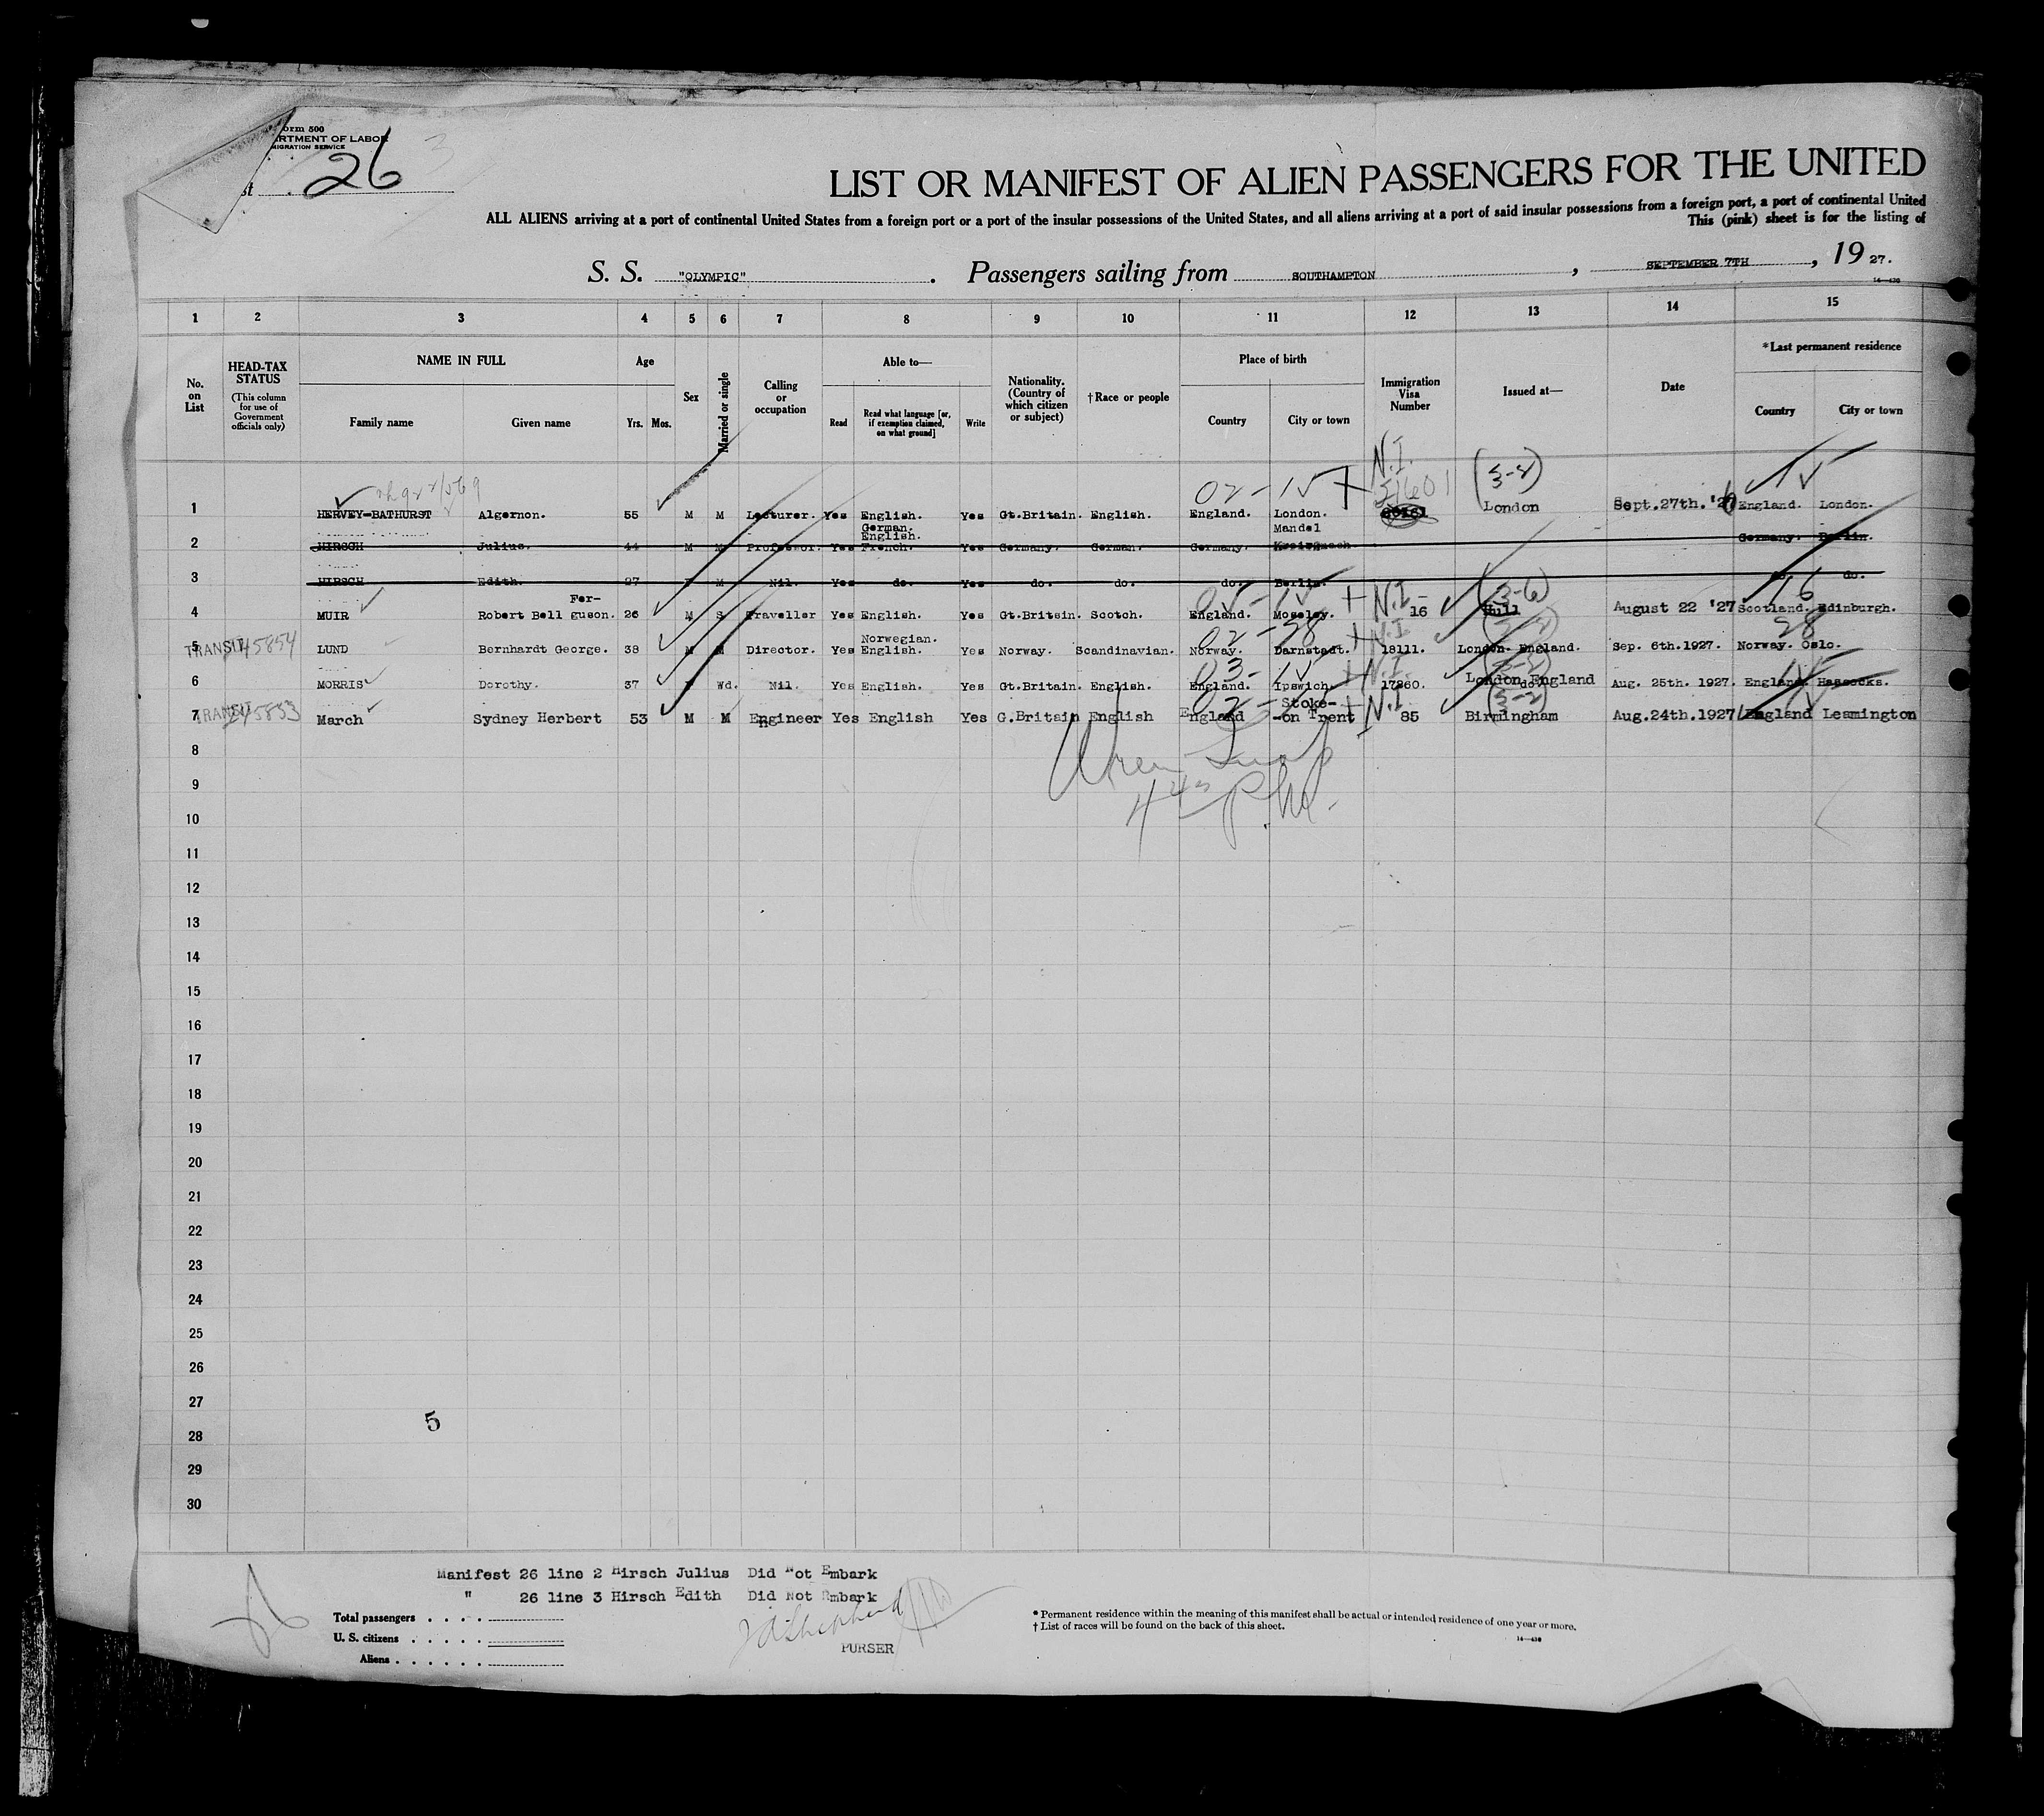 orm 500
RTMENT OF LABOR
MIGRATION SERVICE
st . 26 3
LIST OR MANIFEST OF ALIEN PASSENGERS FOR THE UNITED
ALL ALIENS arriving at a port of continental United States from a foreign port or a port of the insular possessions of the United States, and all aliens arriving at a port of said insular possessions from a foreign port, a port of continental United
This (pink) sheet is for the listing of
S. S. "OLYMPIC" . Passengers sailing from SOUTHAMPTON , SEPTEMBER 7TH , 19 27.
14—430
1 2 3 4 5 6 7 8 9 10 11 12 13 14 15
No. on List
HEAD-TAX STATUS
(This column for use of Government officials only)
NAME IN FULL
Family name Given name
Age
Yrs. Mos.
Sex
Married or single
Calling or occupation
Able to—
Read
Read what language [or, if exemption claimed, on what ground]
Write
Nationality. (Country of which citizen or subject)
† Race or people
Place of birth
Country City or town
Immigration Visa Number
Issued at—
Date
*Last permanent residence
Country City or town
02 - 15 + N.I. 51601 (3-2) 15
1 HERVEY-BATHURST Algernon. 55 M M Lecturer. Yes English. Yes Gt.Britain. English. England. London. London Sept.27th. '27 England. London.
German. Mandel
English.
2 HIRSCH Julius. 44 M M Professor. Yes French. Yes Germany. German. Germany. Kreisnach Germany. Berlin.
3 HIRSCH Edith. 27 M Nil. Yes do. Yes do. do. do. Berlin. do.
Fer-
05 - 15 + N.I. (3-6) 16
4 MUIR Robert Bell guson. 26 M S Traveller Yes English. Yes Gt.Britain. Scotch. England. Moseley. 16 Hull August 22 '27 Scotland. Edinburgh.
Norwegian. 02 - 28 + N.I. 28
TRANSIT 245854
5 LUND Bernhardt George. 38 M M Director. Yes English. Yes Norway. Scandinavian. Norway. Darnstadt. 18111. London. England. Sep. 6th.1927. Norway. Oslo.
03 - 15 + N.I. 15
6 MORRIS Dorothy. 37 Wd. Nil. Yes English. Yes Gt.Britain. English. England. Ipswich. 17260. London England do. Aug. 25th. 1927. England. Hassocks.
TRANSIT 245853 02 - Stoke- + N.I. (3-2) 15
7 March Sydney Herbert 53 M M Engineer Yes English Yes G.Britain English England -on Trent 85 Birmingham Aug.24th.1927 England Leamington
8
9
10
11
12
13
14
15
16
17
18
19
20
21
22
23
24
25
26
27
5
28
29
30
Manifest 26 line 2 Hirsch Julius Did Not Embark
" 26 line 3 Hirsch Edith Did Not Embark
Total passengers . . . .
U. S. citizens . . . . .
Aliens . . . . . .
PURSER
* Permanent residence within the meaning of this manifest shall be actual or intended residence of one year or more.
† List of races will be found on the back of this sheet.
14—430